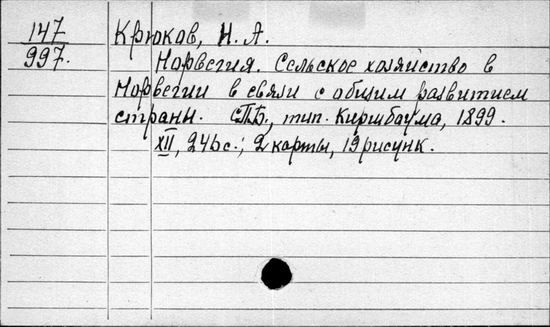 147
997.
Крюков, Н. А.
Норвегия. Сельское хозяйство в
Норвегии в связи с общим развитием
страны. СПБ., тип. Киршбаума, 1899.
XII, 246 с.; 2 карты, 19 рисунк.